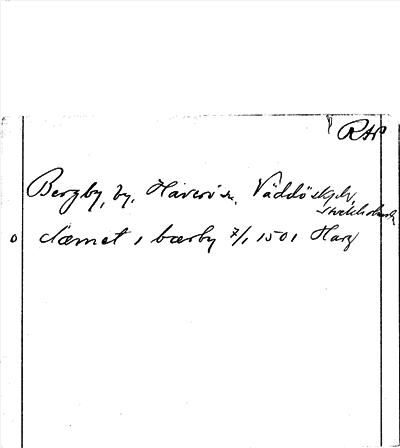 RAP
Bergby, by, Häverö sn. Väddö skplv,
Stockholms
o clæmet i bærby 7/1 1501 Harg